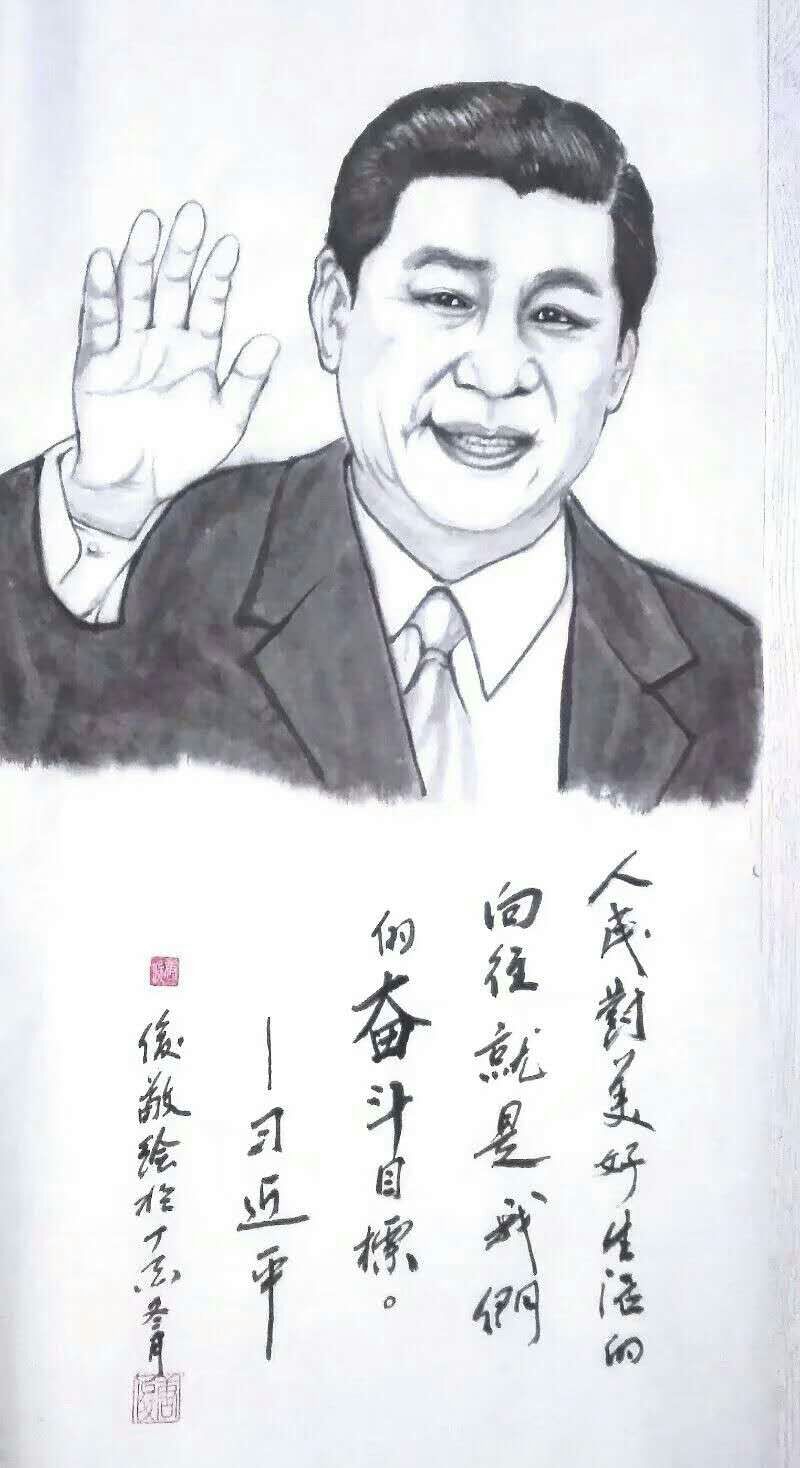 人民對美好生活的
向往就是我們
的奋斗目標。
—习近平
俊敬绘於丁酉冬月